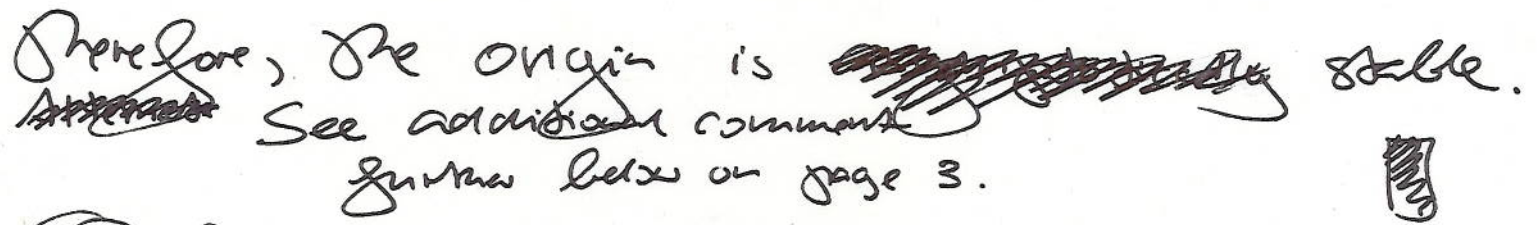 Therefore, the origin is stable.
See additional comment
further below on page 3.